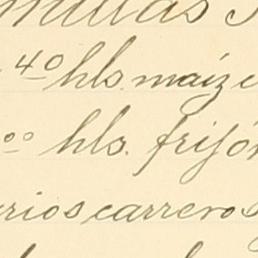 millas
40 hls. maíz
00 hls. frijo
rios carreros